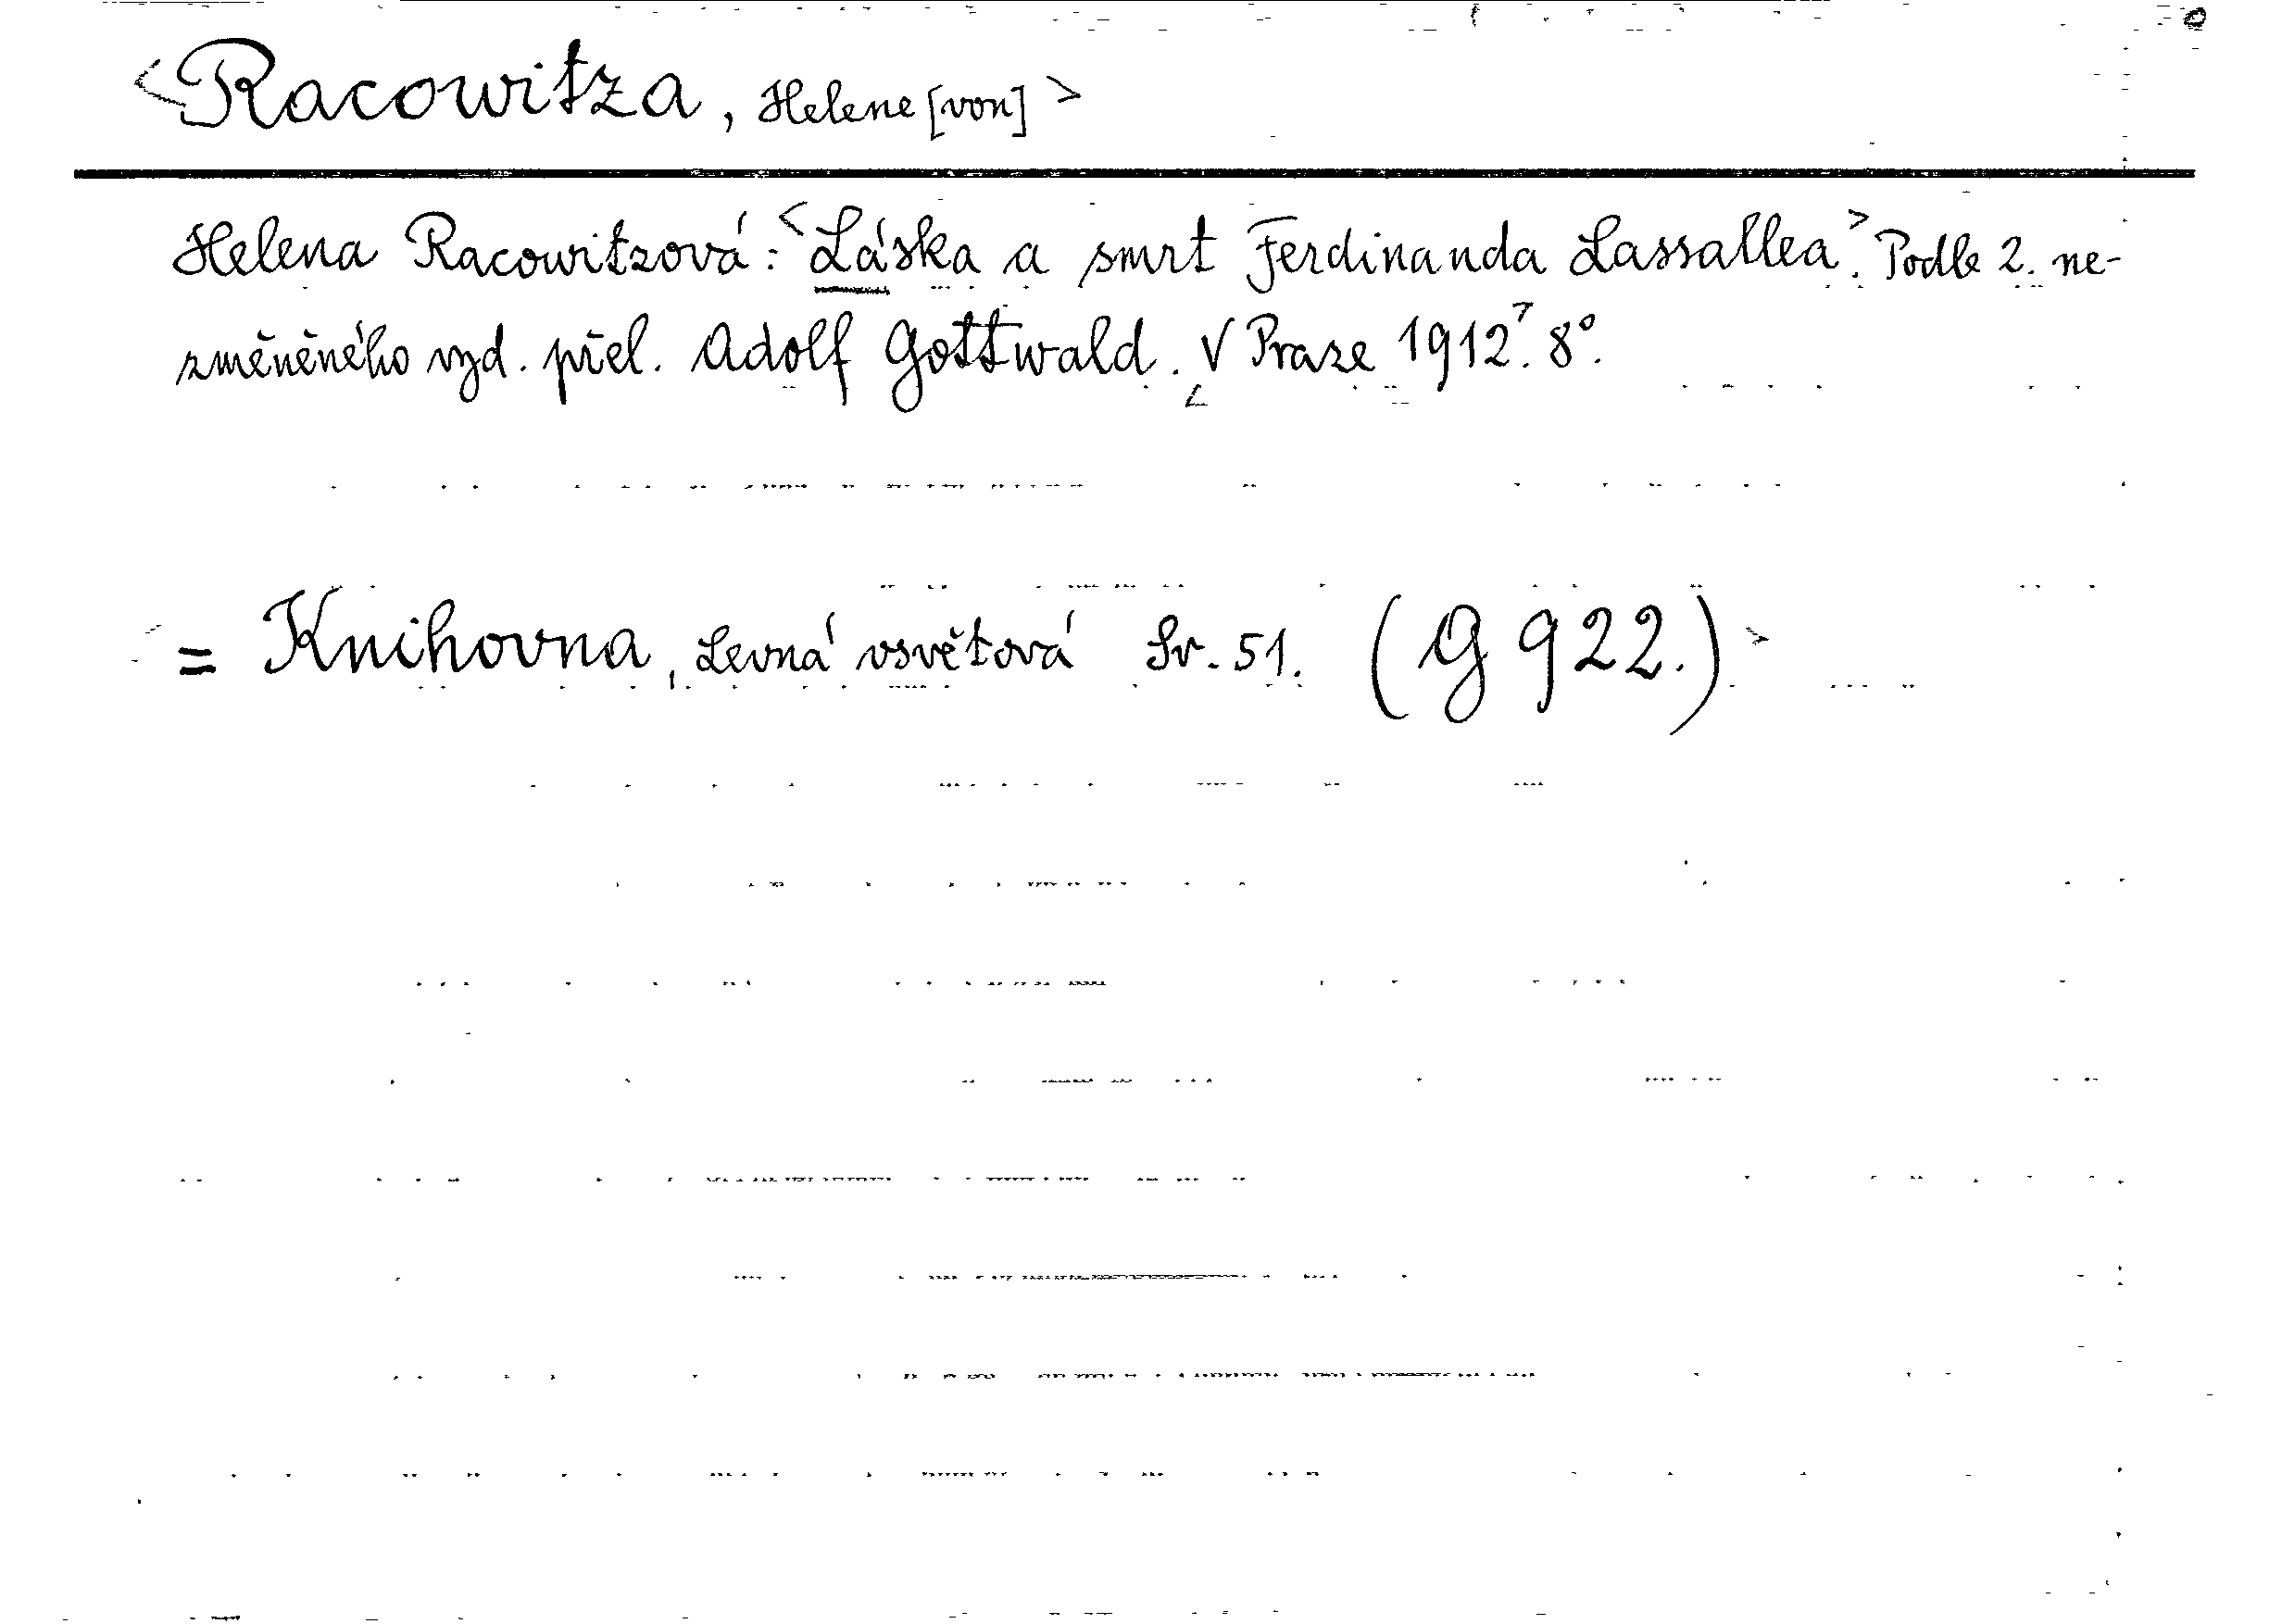 <Racowitza, Helene [von]>
Helena Racowitzová: <Láska a smrt Ferdinanda Lassallea>. Podle 2. ne-
změněného vyd. přel. Adolf Gottwald. <V Praze 1912>. 8°.
= Knihovna, Levná osvětová Sv. 51. (G 922.)>